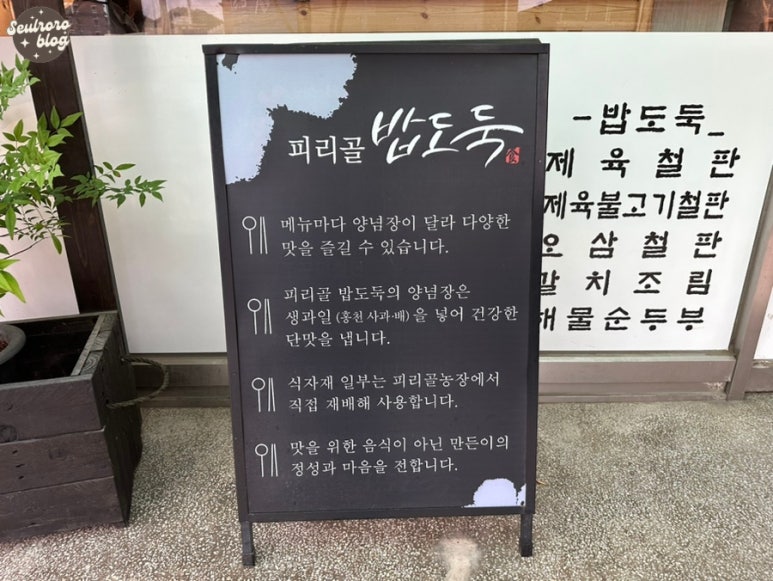 Seulroro
blog
피리골 밥도둑
메뉴마다 양념장이 달라 다양한
맛을 즐길 수 있습니다.
피리골 밥도둑의 양념장은
생과일 (홍천 사과·배) 을 넣어 건강한
단맛을 냅니다.
식자재 일부는 피리골농장에서
직접 재배해 사용합니다.
맛을 위한 음식이 아닌 만든이의
정성과 마음을 전합니다.
-밥도둑_
제육철판
제육불고기철판
오삼철판
갈치조림
해물순두부